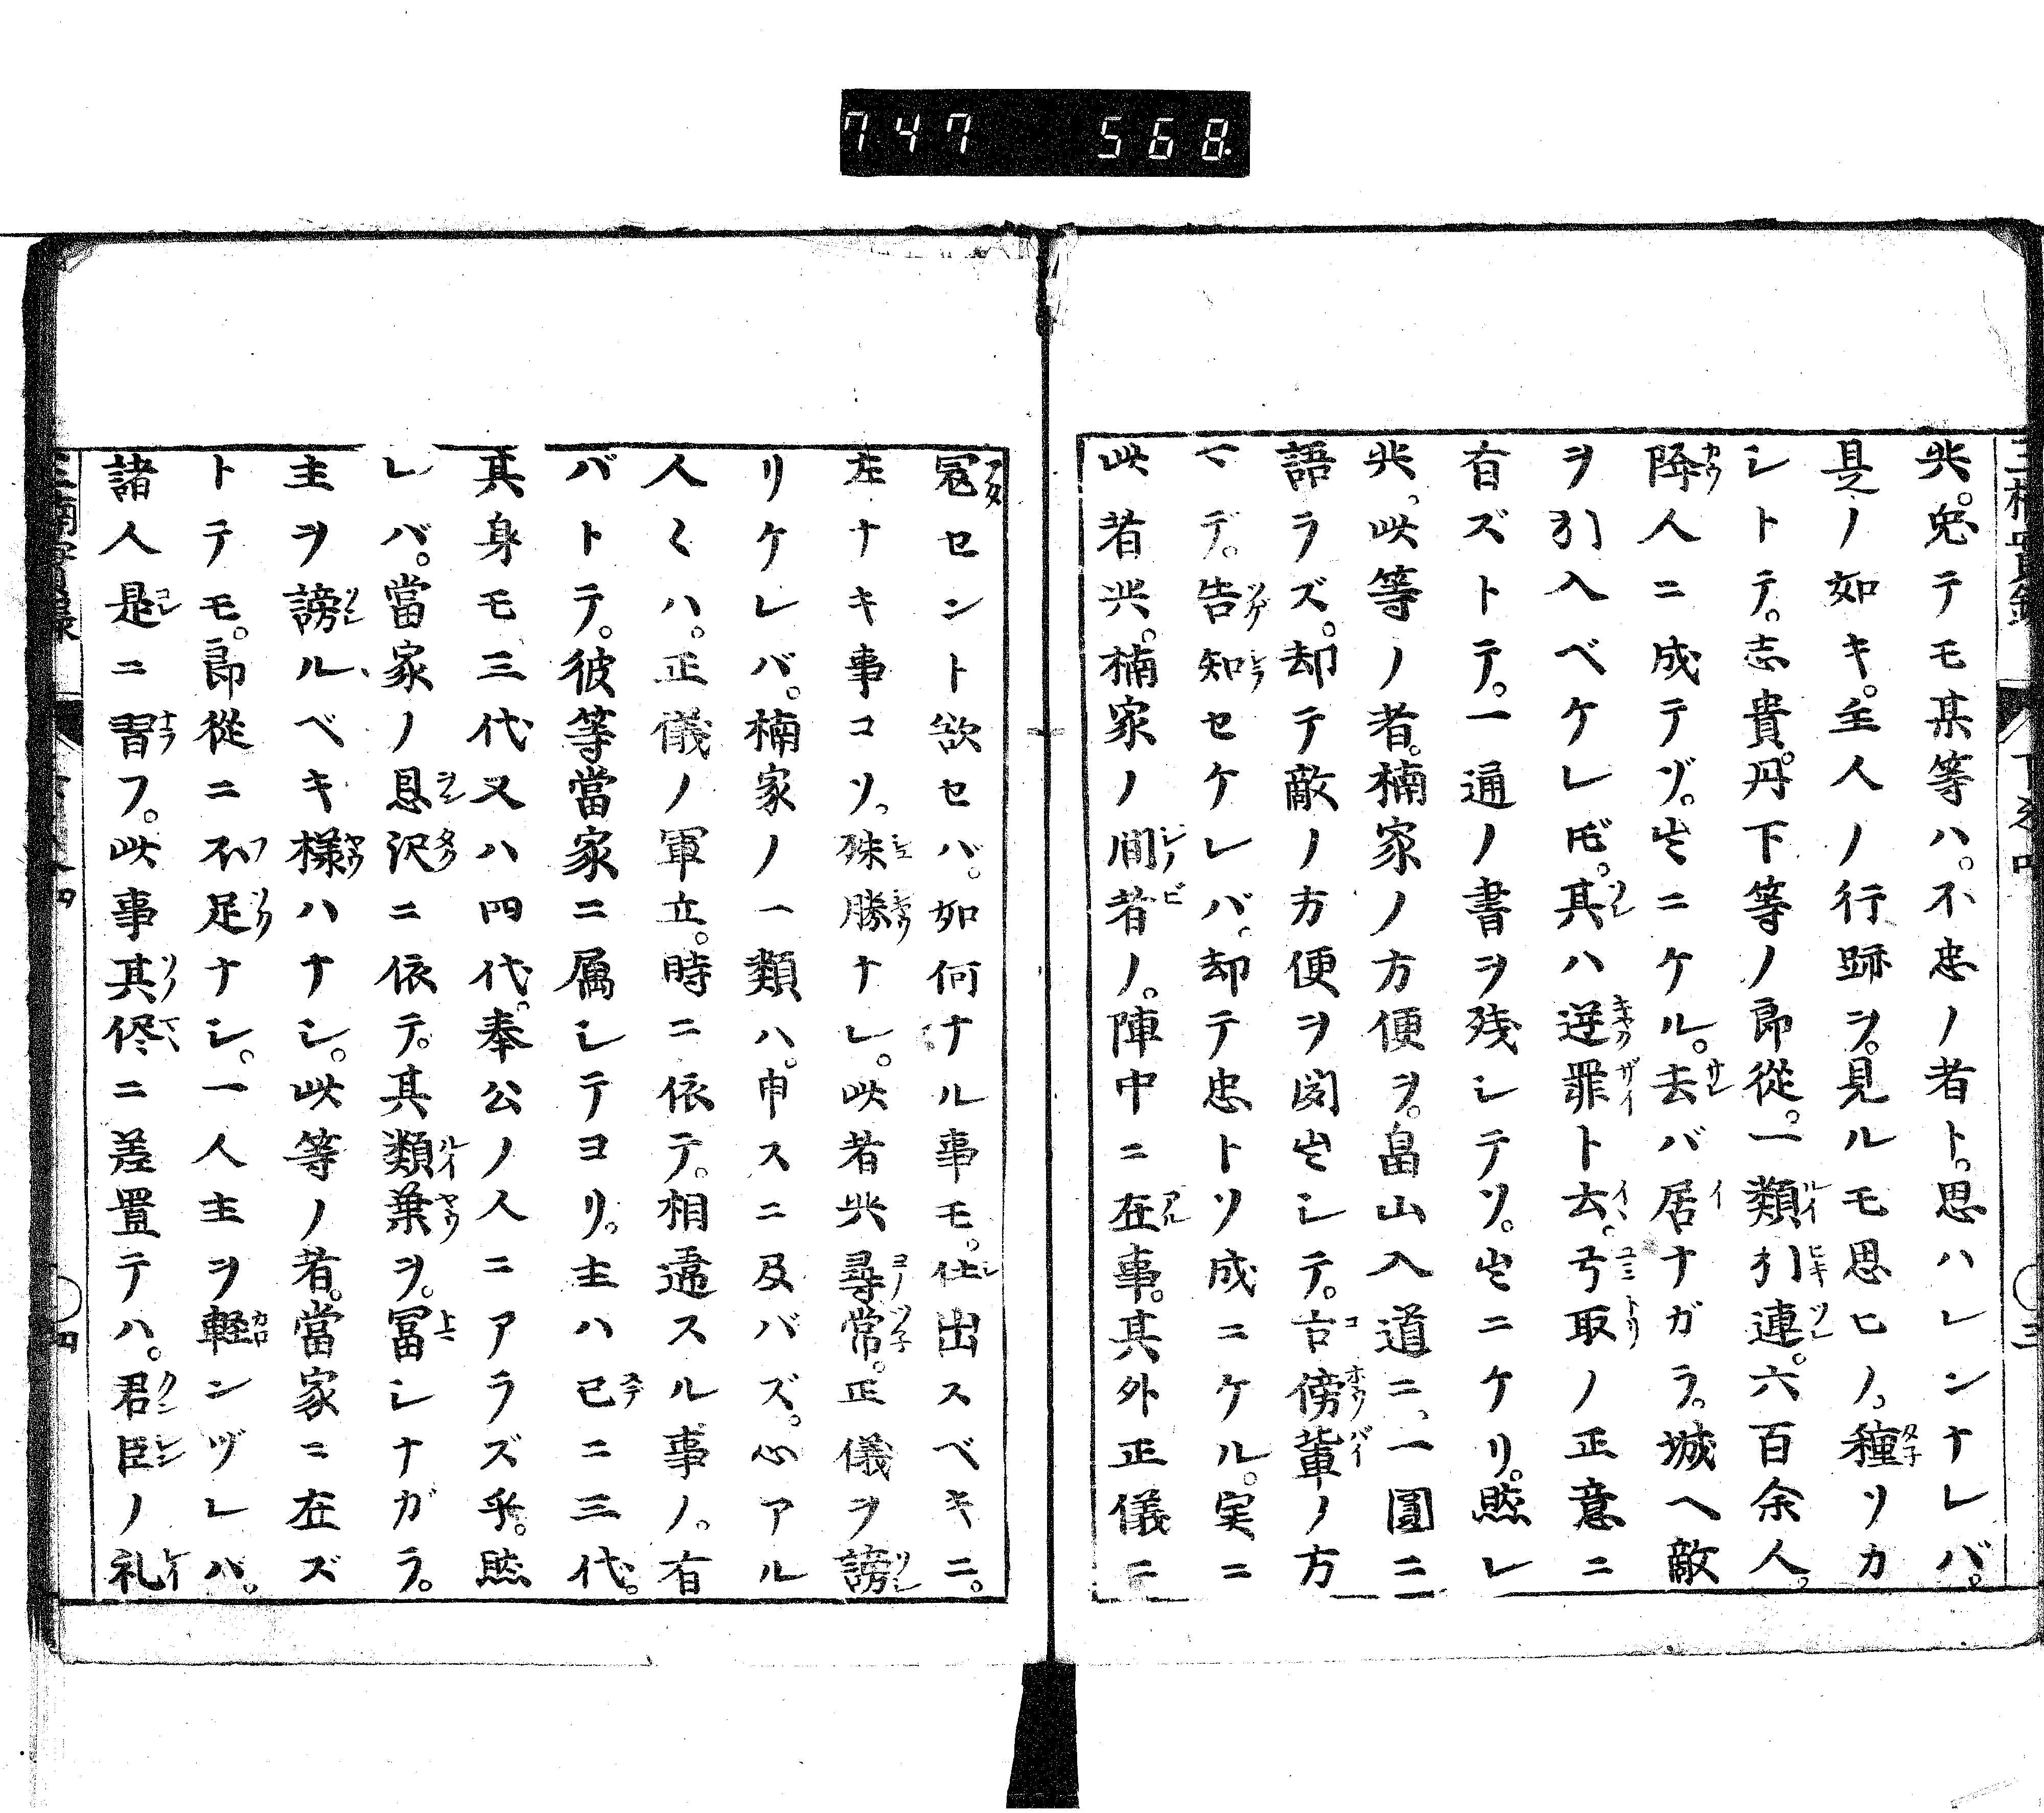 747 568
共。兔テモ某等ハ。不忠ノ者ト。思ハレンナレバ。
是ノ如キ。主人ノ行跡ヲ。見ルモ思ヒノ。種ソカ
シトテ。志貴。丹下等ノ郎從。一類引連。六百余人。
降人ニ成テゾ。出ニケル。去バ居ナガラ。城ヘ敵
ヲ引入ベケレ𪜈。其ハ逆罪ト云。弓取ノ正意ニ
有ズトテ。一通ノ書ヲ残シテソ。出ニケリ。然レ
共、此等ノ者。楠家ノ方便ヲ。畠山入道ニ、一圓ニ
語ラズ。却テ敵ノ方便ヲ図出シテ。古傍輩ノ方
マデ。告知セケレバ。却テ忠トソ成ニケル。実ニ
此者共。楠家ノ間者ノ。陣中ニ在事。其外正儀ニ
冦セント欲セハ。如何ナル事モ。仕出スベキニ。
左ナキ事コソ。殊勝ナレ。此者共尋常。正儀ヲ謗
リケレバ。楠家ノ一類ハ。申スニ及バズ。心アル
人〱ハ。正儀ノ軍立。時ニ依テ。相違スル事ノ。有
バトテ。彼等當家ニ属シテヨリ。主ハ已ニ三代。
其身モ三代又ハ四代。奉公ノ人ニアラズ乎。然
レバ。當家ノ恩沢ニ依テ。其類葉ヲ。冨シナガラ。
主ヲ謗ル、ベキ様ハナシ。此等ノ者。當家ニ在ズ
トテモ。郎從ニ不足ナシ。一人主ヲ軽ンヅレバ。
諸人是ニ習フ。此事其侭ニ差置テハ。君臣ノ礼